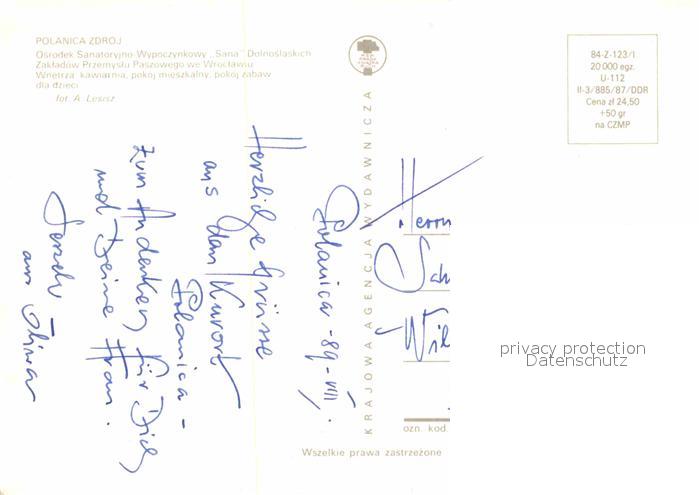 POLANICA ZDRÓJ
Ośrodek Sanatoryjno-Wypoczynkowy „Sana" Dolnośląskich
Zakładów Przemysłu Paszowego we Wrocławiu
Wnętrza: kawiarnia, pokój mieszkalny, pokój zabaw
dla dzieci
fot. A. Lesisz
84-Z-123/I
20 000 egz.
U-112
II-3/885/87/DDR
Cena zł 24,50
+50 gr
na CZMP
KRAJOWA AGENCJA WYDAWNICZA
Polanica - 89 - VIII.
Herzliche Grüsse
aus dem Kurort
Polanica -
zum Andenken für Dich
und Deine Frau.
aus Oliwa
Herrn
Sch
Wil
privacy protection
Datenschutz
ozn. kod.
Wszelkie prawa zastrzeżone